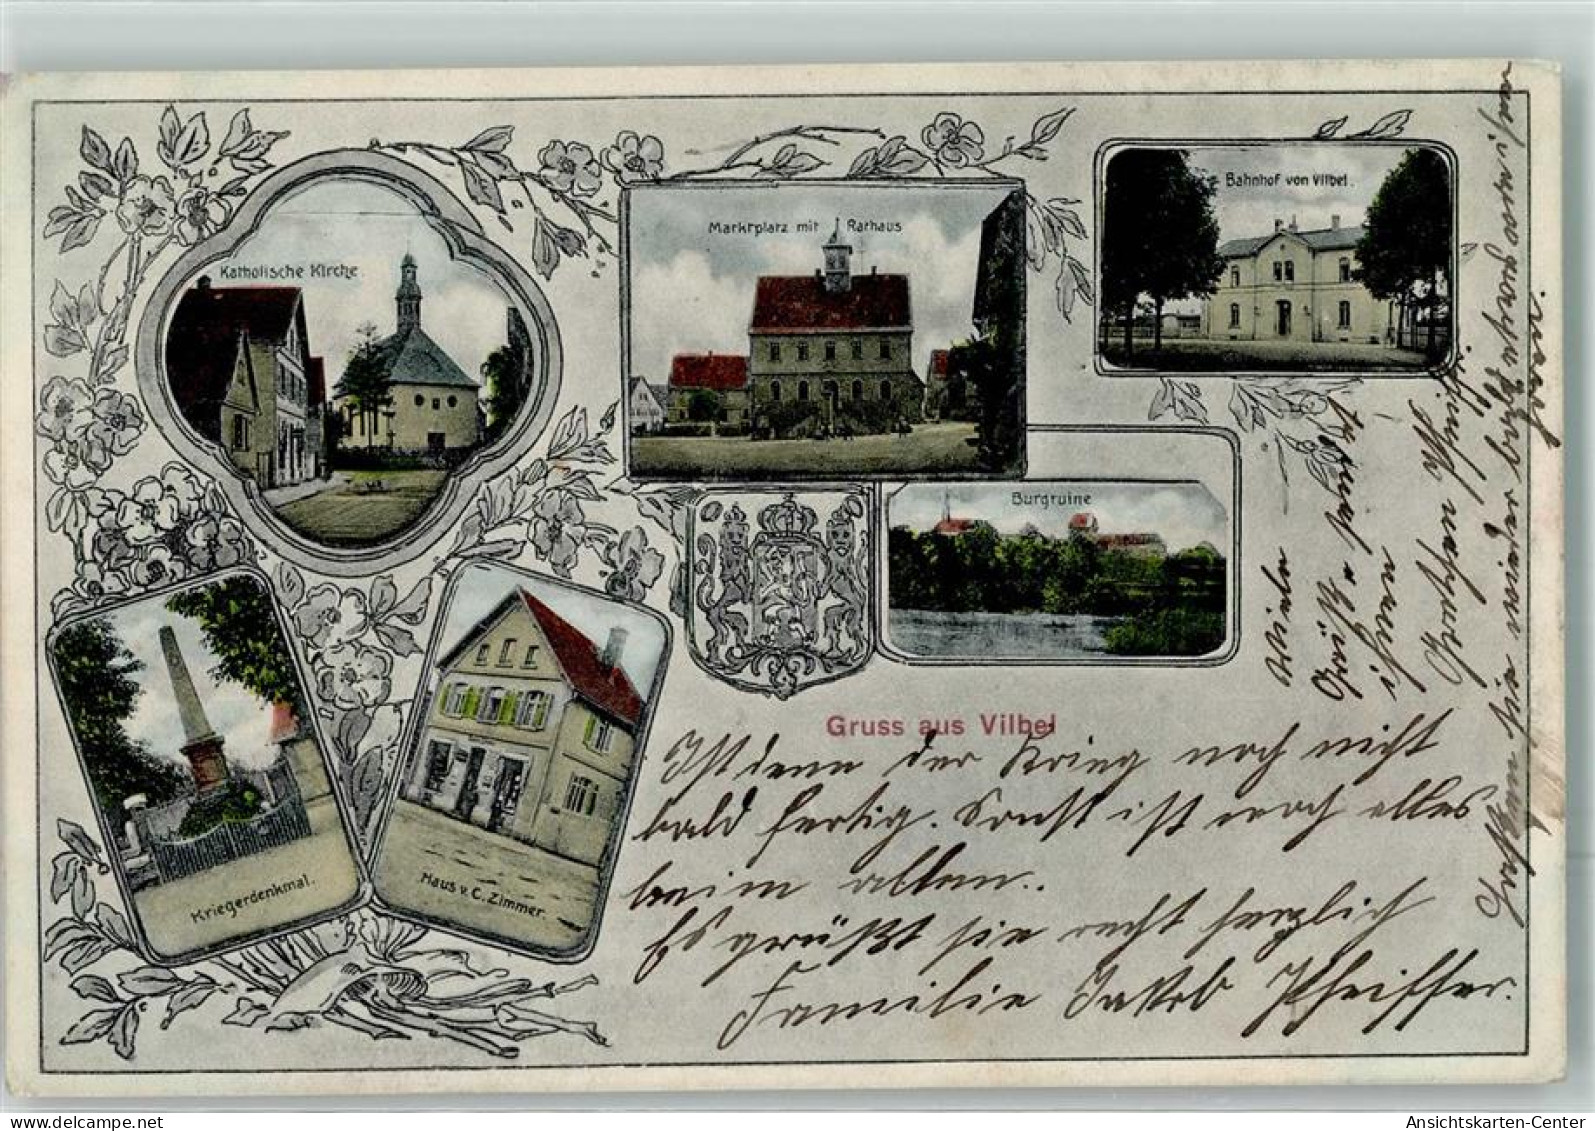 Katholische Kirche.
Marktplatz mit Rathaus
Bahnhof von Vilbel.
Burgruine
Kriegerdenkmal.
Haus v. C. Zimmer.
Gruss aus Vilbel
Ist denn der Krieg noch nicht
bald fertig. Sonst ist noch alles
beim alten..
Es grüßt sie recht herzlich
Familie Jakob Pfeiffer.
Viele
Grüße
ihnen
sie wieder
Ansichtskarten-Center